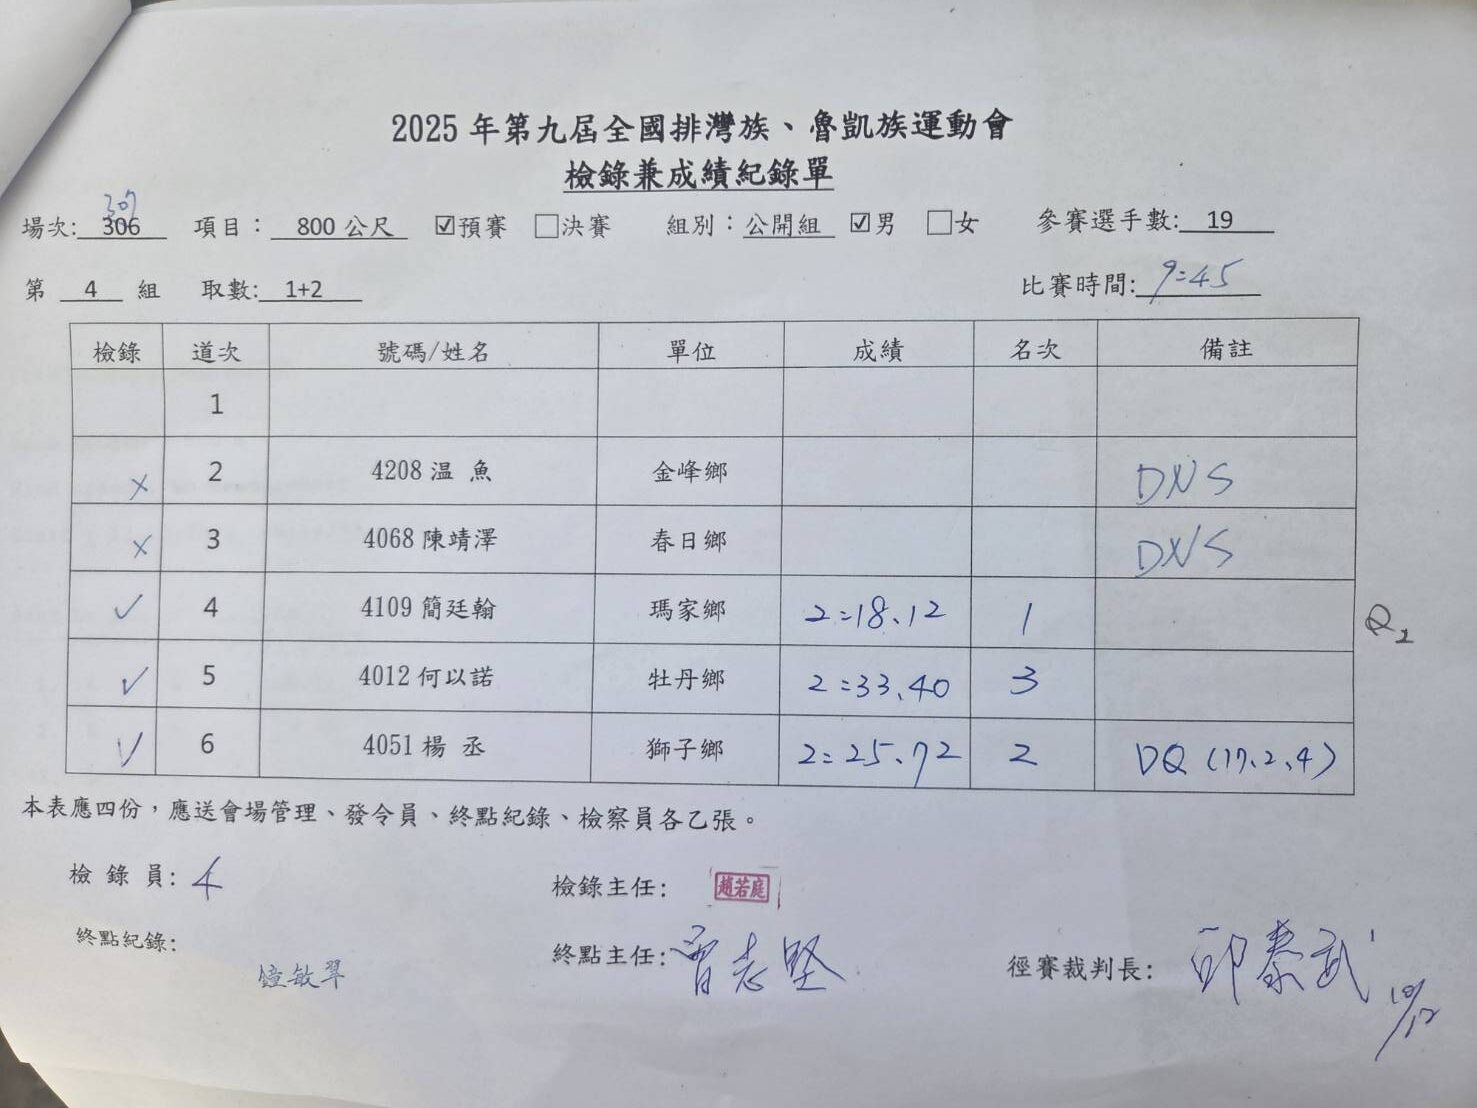 2025 年第九屆全國排灣族、魯凱族運動會
檢錄兼成績紀錄單
307
場次: 306 項目： 800 公尺 ☑預賽 □決賽 組別：公開組 ☑男 □女 參賽選手數: 19
第 4 組 取數: 1+2 比賽時間: 9:45
檢錄 道次 號碼/姓名 單位 成績 名次 備註
1
× 2 4208 温 魚 金峰鄉 DNS
× 3 4068 陳靖澤 春日鄉 DNS
✓ 4 4109 簡廷翰 瑪家鄉 2:18.12 1 Q
✓ 5 4012 何以諾 牡丹鄉 2:33.40 3
✓ 6 4051 楊 丞 獅子鄉 2:25.72 2 DQ (17.2.4)
本表應四份，應送會場管理、發令員、終點紀錄、檢察員各乙張。
檢 錄 員: 檢錄主任: 趙若庭
終點紀錄: 終點主任: 曾志堅 徑賽裁判長: 邱泰武
10/12